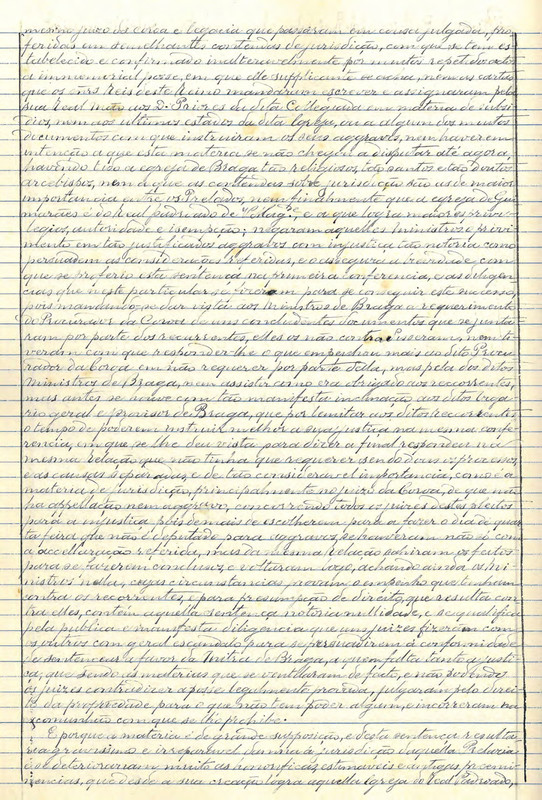 mesmo juizo da coroa e legacia que passaram em cousa julgada, pro-
feridas em semelhantes contendas de jurisdicção, com que se tem es-
tabelecido e confirmado inalteravelmente por muitos repetidos actos
a immemorial posse, em que elle supplicante se acha, nem as cartas
que os Snrs Reis deste Reino mandaram escrever e assignaram pela
sua Real mão aos D. Priores da dita Collegiada em materia de subsi-
dios, nem aos ultimos estados da dita Igreja, ou a algum dos muitos
documentos com que instruiram os seus aggravos, nem haverem
intenção a que esta materia se não chegou a disputar até agora,
havendo tido a egreja de Braga tão religiosos, tão santos e tão doutos
arcebispos, nem a que as contendas sobre jurisdicção são as de maior
importancia entre os Prelados, nem finalmente que a egreja de Gui-
marães é do Real padroado de V. Mag.e, e a que logra maiores privi-
legios, autoridade e isempção; negaram aquelles ministros o provi-
mento em tão justificados aggravos com injustiça tão notoria como
persuadem as considerações referidas, e o assegura a brevidade com
que se proferio esta sentença na primeira conferencia, e as diligen-
cias que n'este particular se fizeram para se conseguir este successo,
pois mandando-se dar vista aos Ministros de Braga a requerimento
do Procurador da Coroa de uns concludentes documentos que se junta-
ram por parte dos recorrentes, elles os não contrapuseram, nem ti-
veram com que responder-lhe o que empenhou mais ao dito Procu-
rador da Coroa em não requerer por parte d'ella, mas pela dos ditos
Ministros de Braga, nem assistir como era obrigado aos recorrentes,
mas antes se houve com tão manifesta inclinação aos ditos viga-
rio geral e provisor de Braga, que por limitar aos ditos recorrentes
o tempo de poderem instruir melhor a sua justiça na mesma confe-
rencia, em que se lhe deu vista para dizer a final respondeu na
mesma relação que não tinha que requerer sendo dois os processos,
e as causas separadas e de tão consideravel importancia, como é a
materia de jurisdicção, principalmente no juizo da Coroa, de que não
ha appellação nem aggravo, concorrendo todos os juizes destes pleitos
para a injustiça, pois demais de escolherem para o fazer o dia de quar-
ta feira que não é deputado para aggravos, se houveram não só com
a acceleração referida, mas da mesma relação sahiram os feitos
para se fazerem conclusos, e voltaram logo, achando ainda os mi-
nistros n'ella, cujas circunstancias provam o empenho que tinham
contra os recorrentes, e para presumpção de direito, que resulta con-
tra elles, contém aquella sentença notoria nullidade, e se qualifica
pela publica e manifesta diligencia que uns juizes fizeram com
os outros com geral escandalo para se persuadirem á conformidade
de sentenças a favor da Mitra de Braga, a quem falta tanto a justi-
ça, que sendo as materias que se ventilaram de facto, e não podendo
os juizes contradizer a posse legalmente provada, julgaram pelo direi-
to da propriedade, para o que não tem poder algum, e incorreram na
excomunhão com que se lhe prohibe.
E porque a materia é de grande supposição, e desta sentença resulta-
ria gravissimo e irreparavel damno á jurisdicção daquella Prelazia
e se deteriorariam muito as honorificas, estimaveis e antigas preemi-
nencias, que desde a sua creação logra aquella Igreja do Real Padroado,